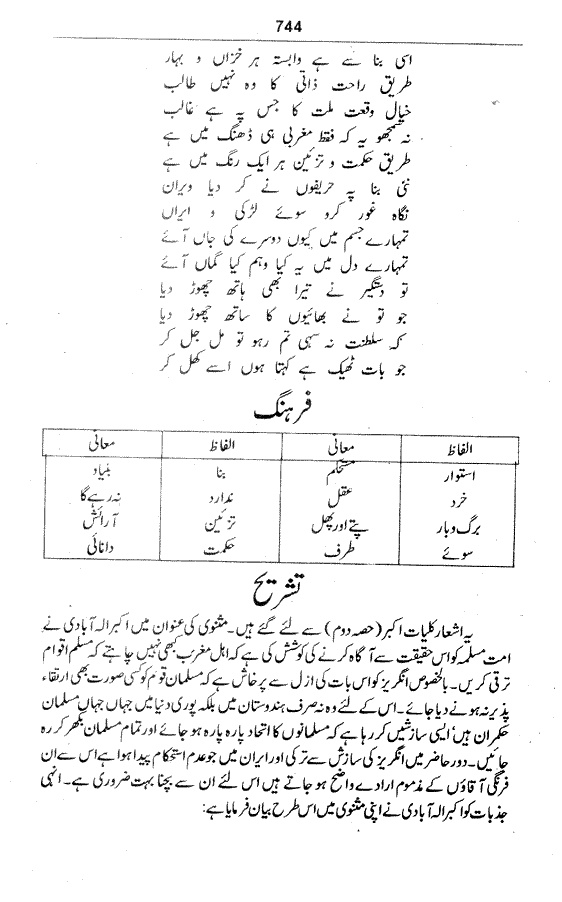 744
اسی بنا سے ہے وابستہ ہر خزاں و بہار
طریق راحت ذاتی کا وہ نہیں طالب
خیال وقعت ملت کا جس پہ ہے غالب
نہ سمجھو یہ کہ فقط مغربی ہی ڈھنگ میں ہے
طریق حکمت و تزئین ہر ایک رنگ میں ہے
نئی بنا پہ حریفوں نے کر دیا ویران
نگاہ غور کرو سوئے لڑکی و ایراں
تمہارے جسم میں کیوں دوسرے کی جاں آئے
تمہارے دل میں یہ کیا وہم کیا گماں آئے
تو دستگیر نے تیرا بھی ہاتھ چھوڑ دیا
جو تو نے بھائیوں کا ساتھ چھوڑ دیا
کہ سلطنت نہ سہی تم رہو تو مل جل کر
جو بات ٹھیک ہے کہتا ہوں اسے کھل کر
فرہنگ
الفاظ معانی الفاظ معانی
استوار مستحکم بنا بنیاد
خرد عقل ندارد نہ رہے گا
برگ و بار پتے اور پھل تزئین آرائش
سوئے طرف حکمت دانائی
تشریح
یہ اشعار کلیات اکبر (حصہ دوم) سے لئے گئے ہیں۔ مثنوی کی عنوان میں اکبر الہ آبادی نے
امت مسلمہ کو اس حقیقت سے آگاہ کرنے کی کوشش کی ہے کہ اہل مغرب کبھی نہیں چاہتے کہ مسلم اقوام
ترقی کریں۔ بالخصوص انگریز کو اس بات کی ازل سے پرخاش ہے کہ مسلمان قوم کو کسی صورت بھی ارتقاء
پذیر نہ ہونے دیا جائے۔ اس کے لئے وہ نہ صرف ہندوستان میں بلکہ پوری دنیا میں جہاں جہاں مسلمان
حکمران ہیں ایسی سازشیں کر رہا ہے کہ مسلمانوں کا اتحاد پارہ پارہ ہو جائے اور تمام مسلمان بکھر کر رہ
جائیں۔ دور حاضر میں انگریز کی سازش سے ترکی اور ایران میں جو عدم استحکام پیدا ہوا ہے اس سے ان
فرنگی آقاؤں کے مذموم ارادے واضح ہو جاتے ہیں اس لئے ان سے بچنا بہت ضروری ہے۔ انہی
جذبات کو اکبر الہ آبادی نے اپنی مثنوی میں اس طرح بیان فرمایا ہے: